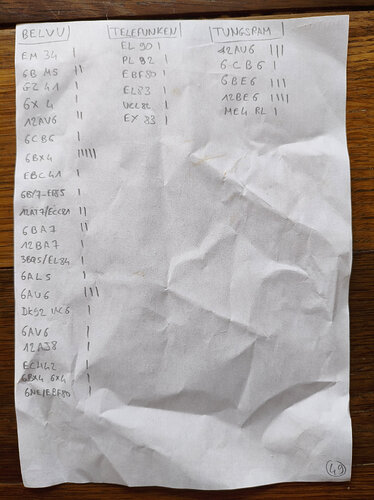 BELVU
EM 34 |
6B M5 ||
GZ 41 |
6X 4 |
12AV6 ||
6CB6 |
6BX4 |||||
EBC41 |
6BY7-EF85 |
12AT7/ECC81 ||
6BA7 ||
12BA7 |
3BQ5/EL84 |
6AL5 |
6AU6 ||||
DK92 1AC6 |
6AV6 |
12AJ8 |
ECH42 |
6BX4 6X4 |
6N8/EBF80 |
TELEFUNKEN
EL 90 |
PL 82 |
EBF80 |
EL83 |
UCL82 |
EY 83 |
TUNGSRAM
12AU6 |||
6CB6 |
6BE6 |||
12BE6 ||||
ME4 RL |
49